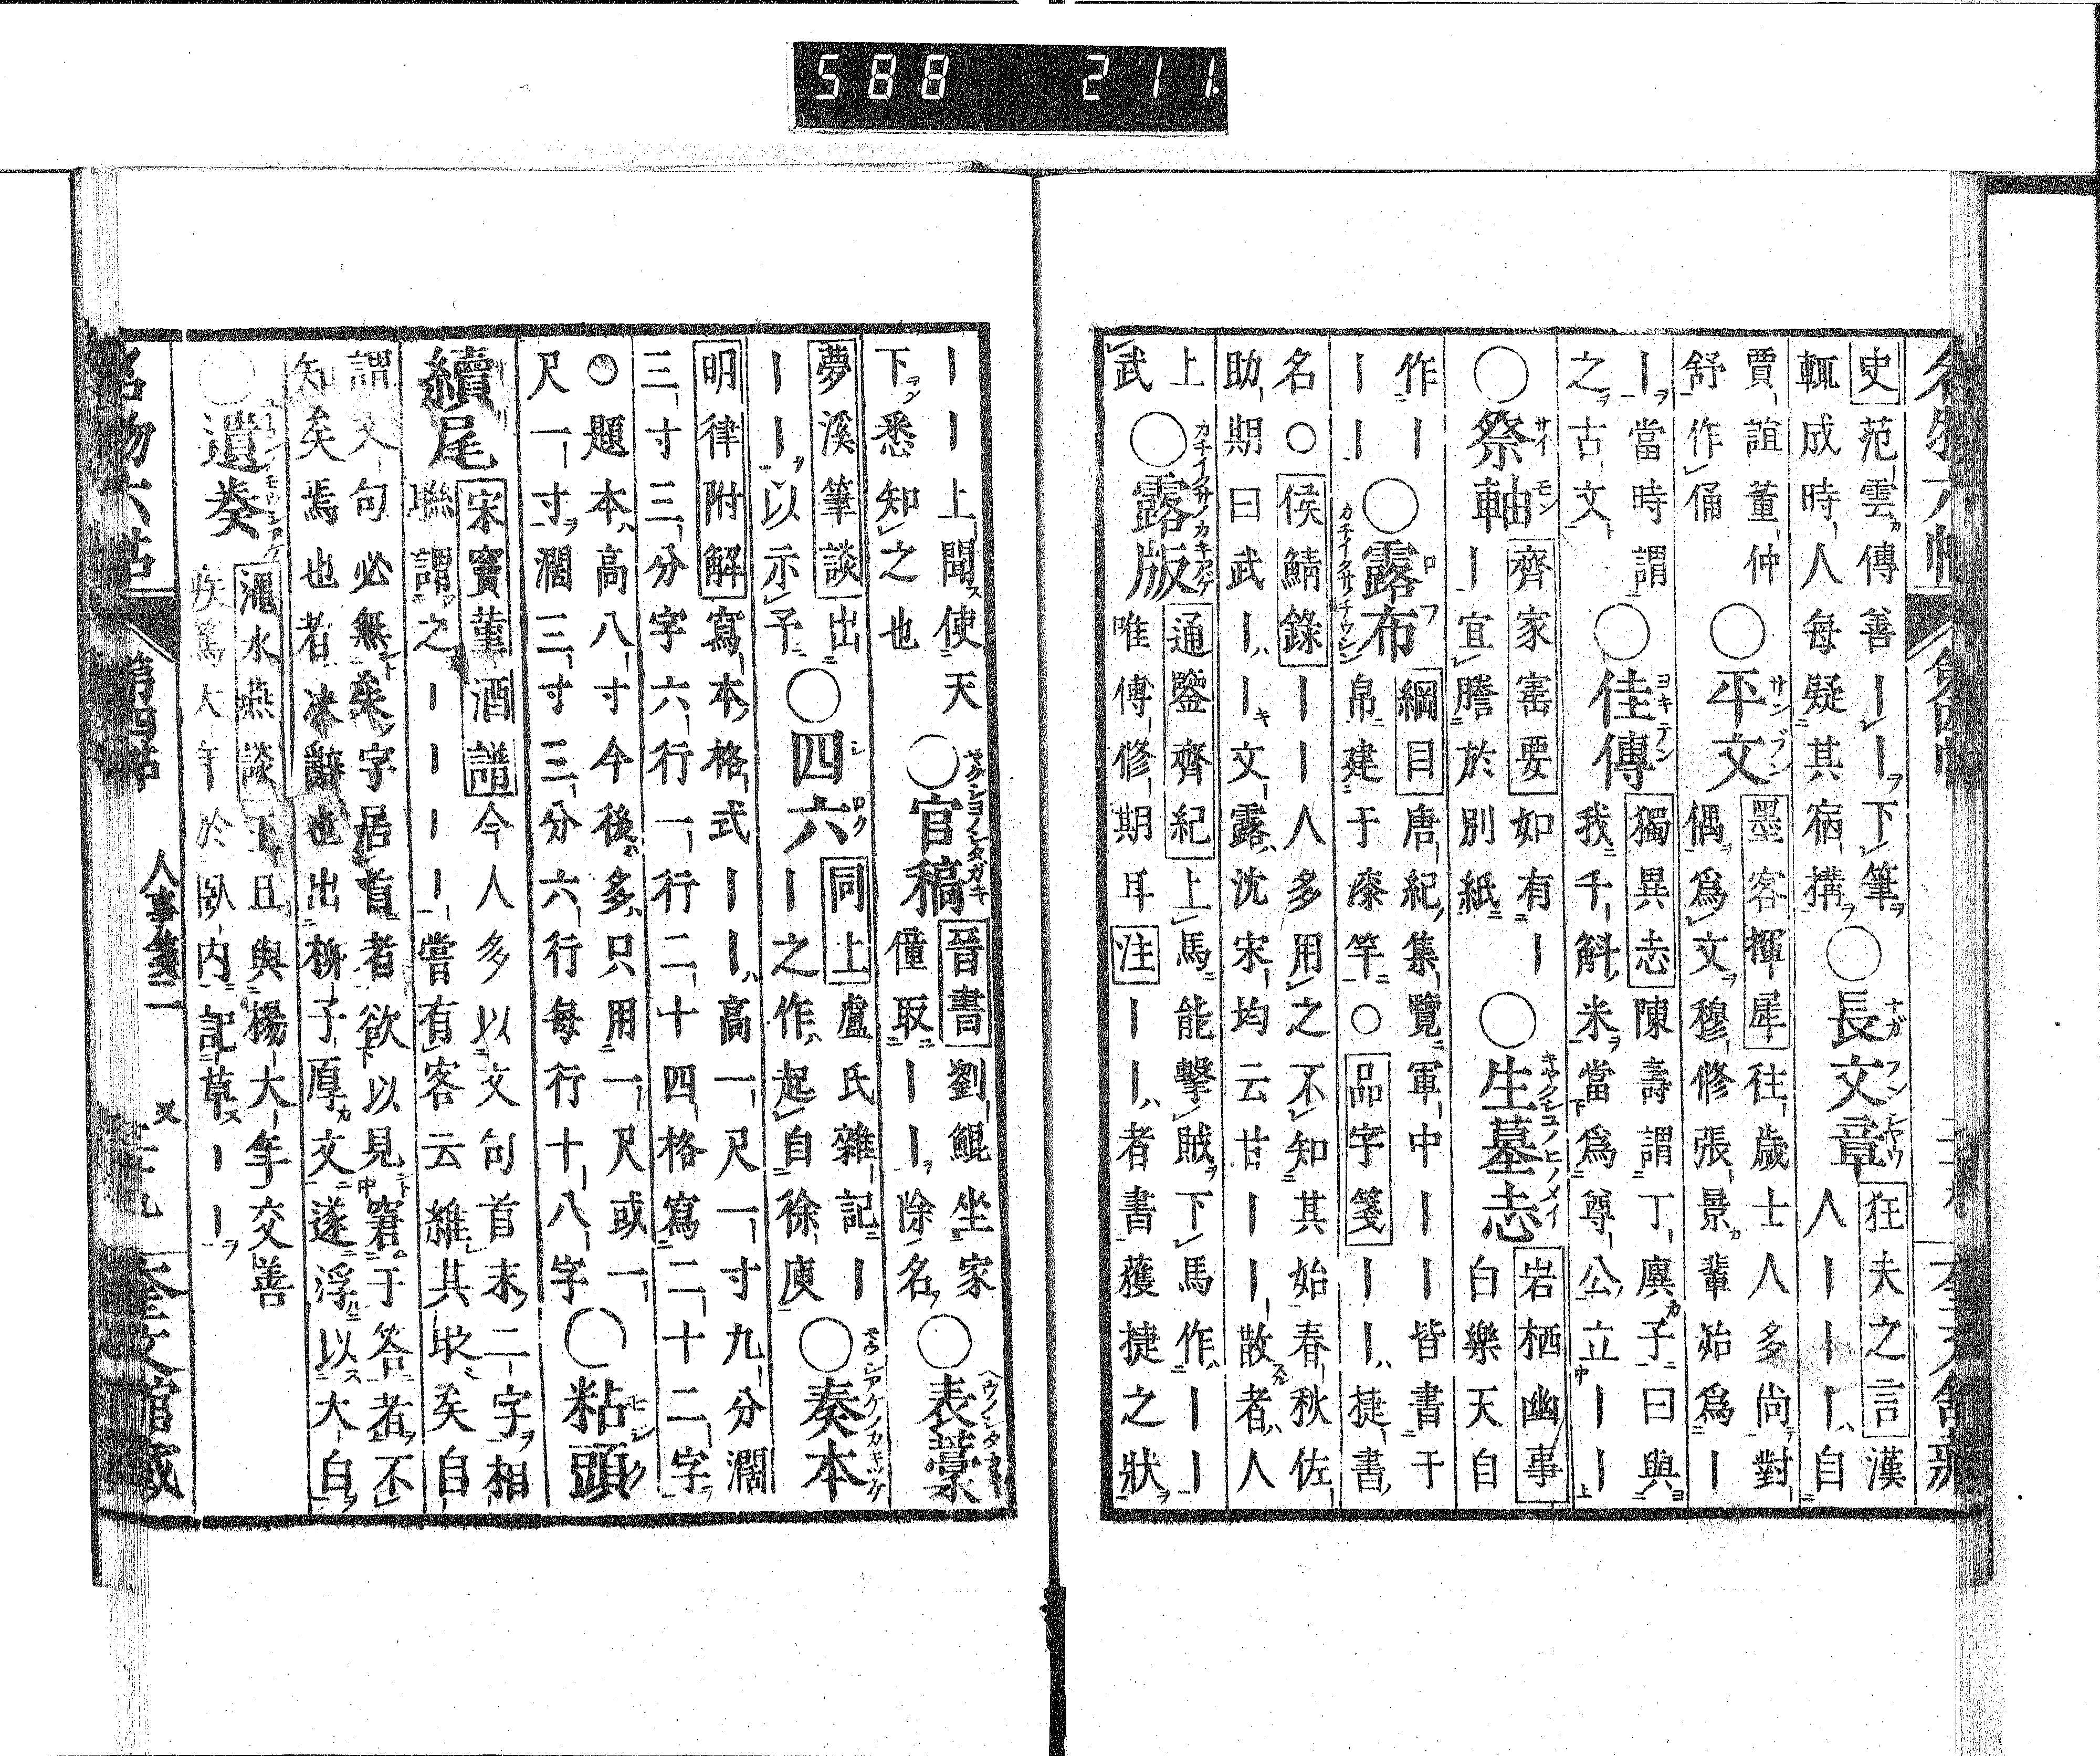 588 211
史范雲傳善丨丨下筆
輒成時人每疑其宿搆
○長文章
狂夫之言漢
人丨丨丨自
賈誼董仲
舒作俑
○平文
墨客揮犀徃歲士人多尚對
偶爲文穆修張景輩始爲丨
丨當時謂
之古文
○佳傳
獨異志陳壽謂丁廙子曰與
我千斛米當爲尊公立丨丨
○祭軸
齊家寚要如有丨
丨宜謄於別紙
○生墓志
岩栖幽事
白樂天自
作丨
丨丨
○露布
綱目唐紀集覽軍中丨丨皆書于
帛建于漆竿○品字箋丨丨捷書
名○侯鯖錄丨丨人多用之不知其始春秋佐
助期曰武丨丨文露沈宋均云甘丨丨散者人
上
武
○露版
通鑒齊紀上馬能擊賊下馬作丨丨
唯傅修期耳注丨丨者書獲捷之狀
丨丨上聞使天
下悉知之也
○官稿
晉書劉鯤坐家
僮取丨丨除名
○表藁
夢溪筆談出
丨丨以示予
○四六
同上盧氏雜記丨
丨之作起自徐庾
○奏本
明律附解寫本格式丨丨高一尺一寸九分濶
三寸三分字六行一行二十四格寫二十二字
○題本高八寸今後多只用一尺或一
尺一寸濶三寸三分六行每行十八字
○粘頭
續尾
宋竇苹酒譜今人多以文句首末二字相
聯謂之丨丨丨丨嘗有客云維其取矣自
謂文句必無矣字居首者欲以見窘于答者不
知矣焉也者决辭也出柳子厚文遂浮以大白
○遺奏
澠水燕談丨丑與楊大年交善
疾篤大年於臥內記草丨丨
名物六帖 第四帖 人事箋二 又 奎文館藏